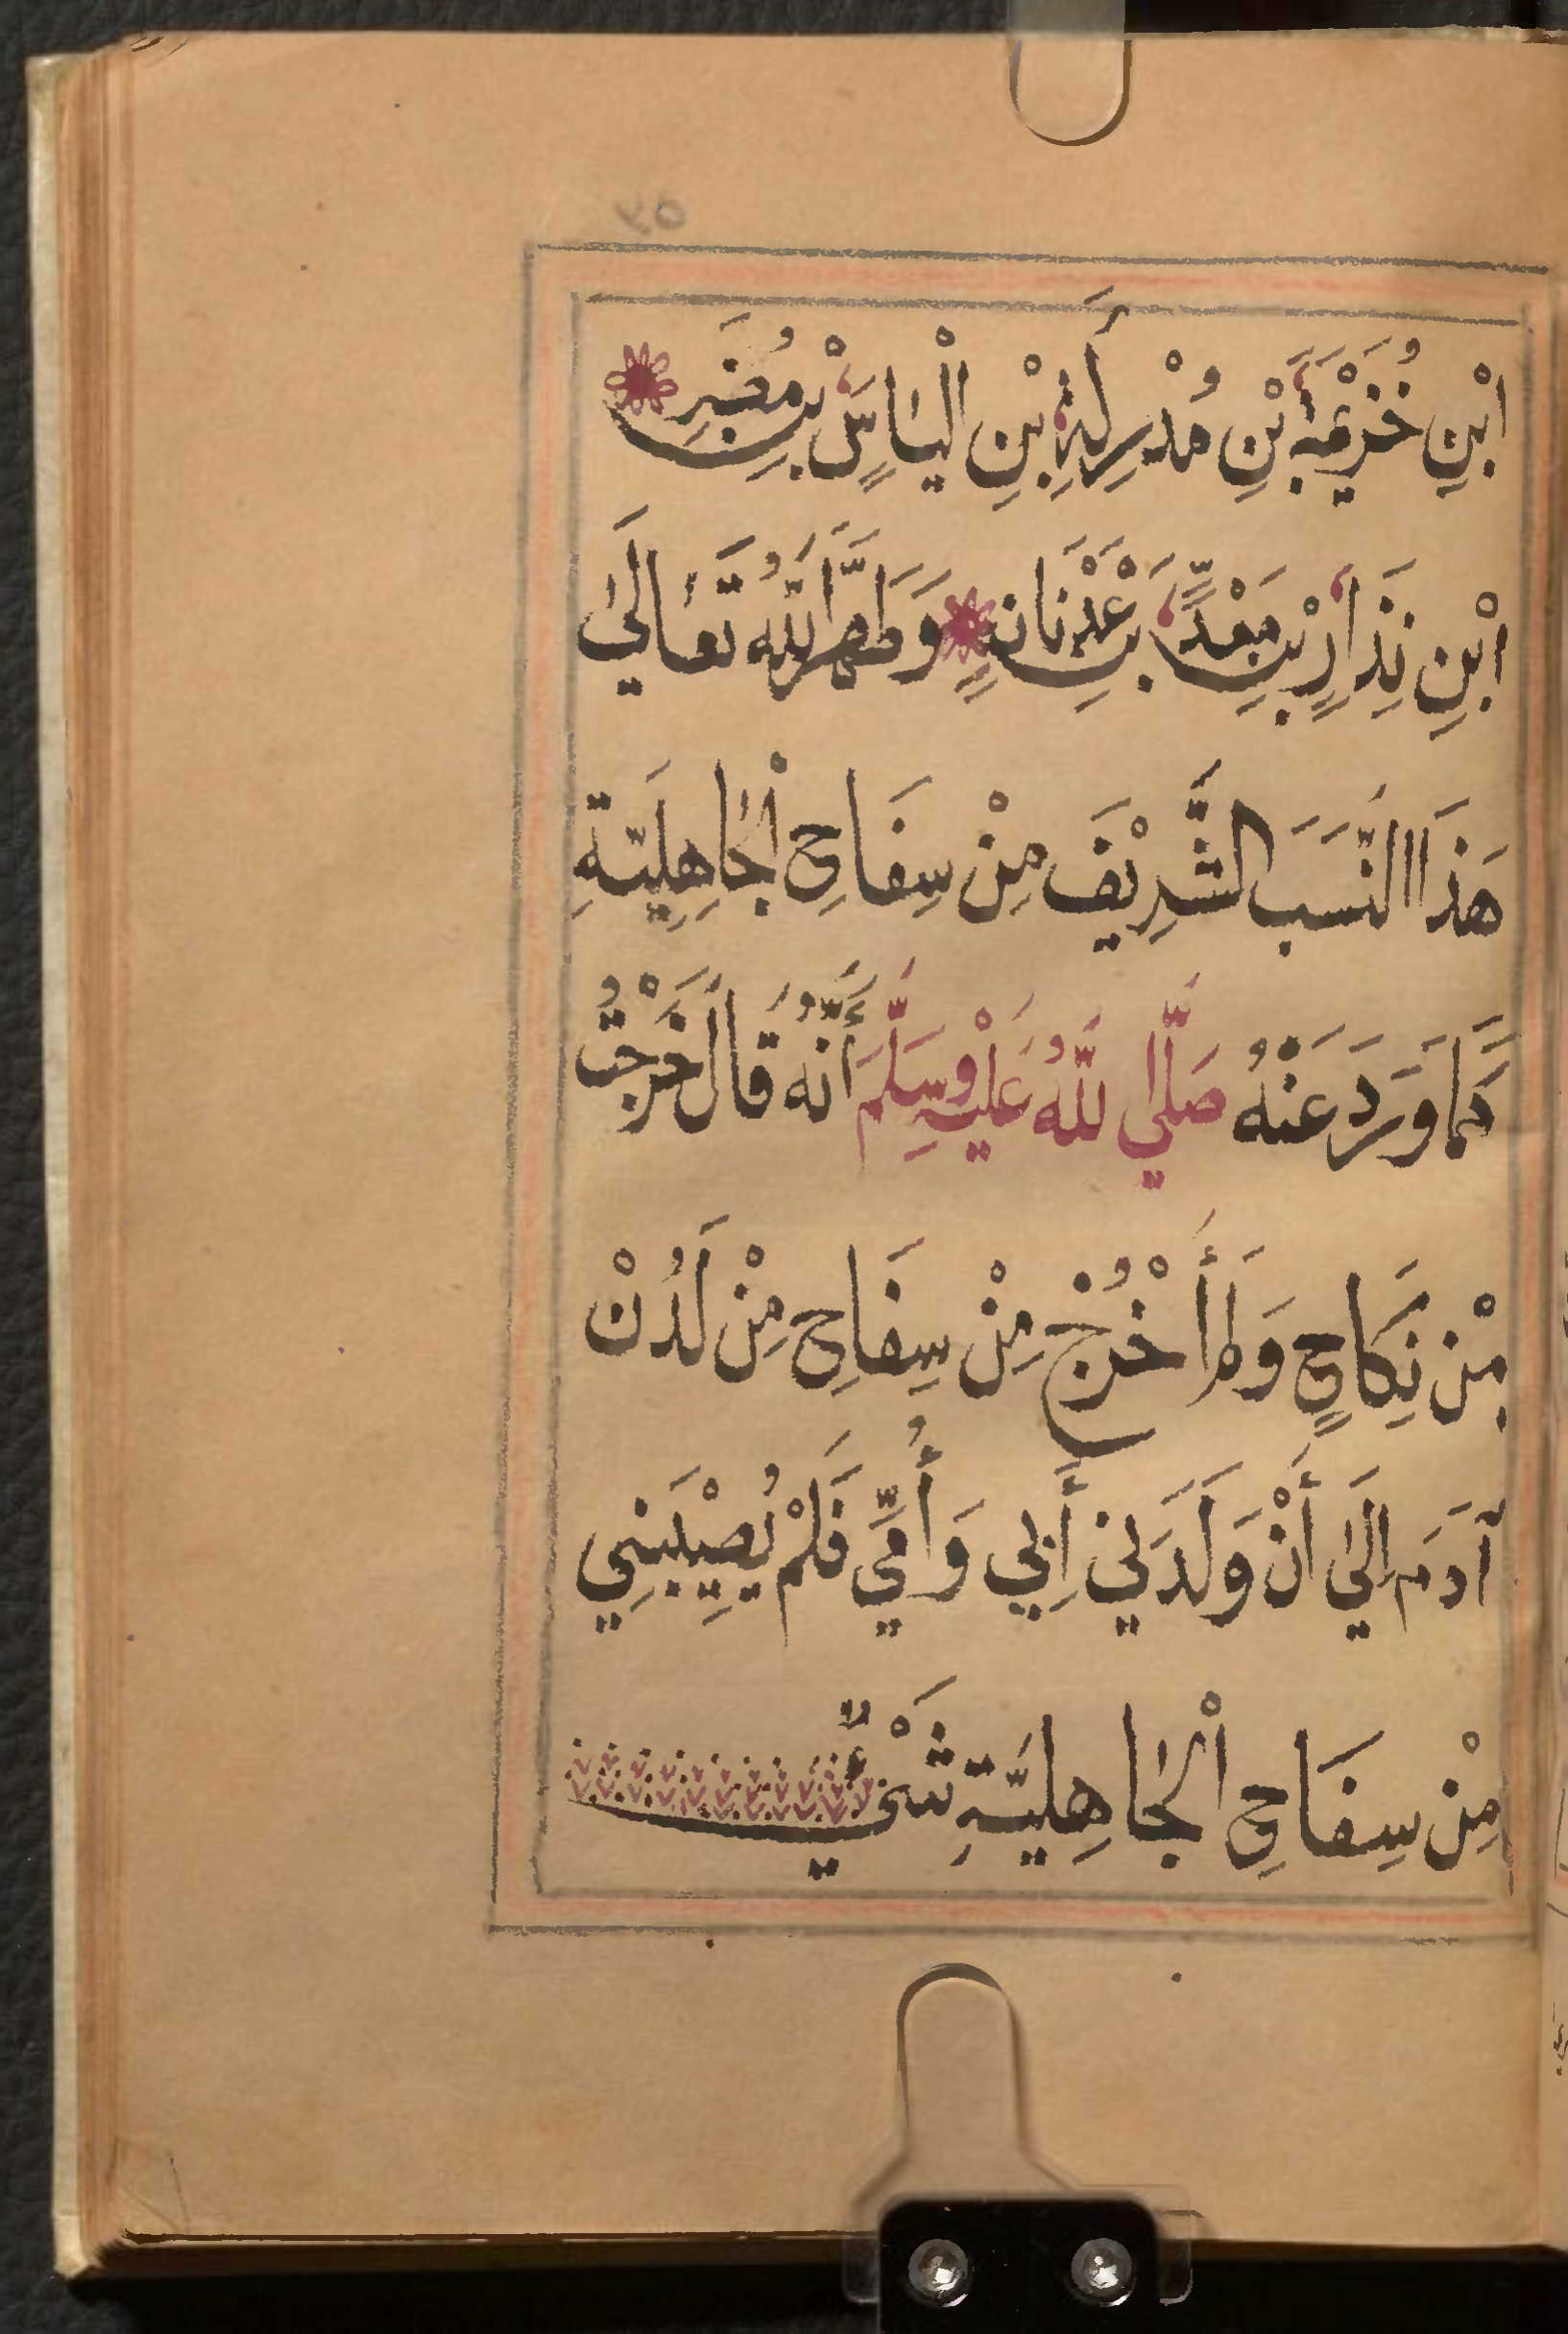 ابْنِ خُزَيْمَةَ بْنِ مُدْرِكَةِ بْنِ الْيَاسٍ بْنِ مُضَرِ
ابْنِ نِذَارٍ بْنِ مَعْدٍّ بْنِ عَدْنَانٍ وَطَهَّرَ اللّٰهُ تَعَالَىٰ
هَذَا النَّسَبَ الشَّرِيْفَ مِنْ سِفَاحِ الْجَاهِلِيَّةِ
كَمَا وَرَدَ عَنْهُ صَلَّي اللّٰهُ عَلَيْهِ وَسَلَّمَ أَنَّهُ قَالَ خَرَجْتُ
مِنْ نِكَاحٍ وَلَمْ أَخْرُجْ مِنْ سِفَاحِ مِنْ لَدُنْ
آدَمَ إِلَيٰ أَنْ وَلَدَنِي أَبِي وَأُمِّي فَلَمْ يُصِيْبَنِي
مِنْ سِفَاحِ الْجَاهِلِيَّةِ شَيْءٌ